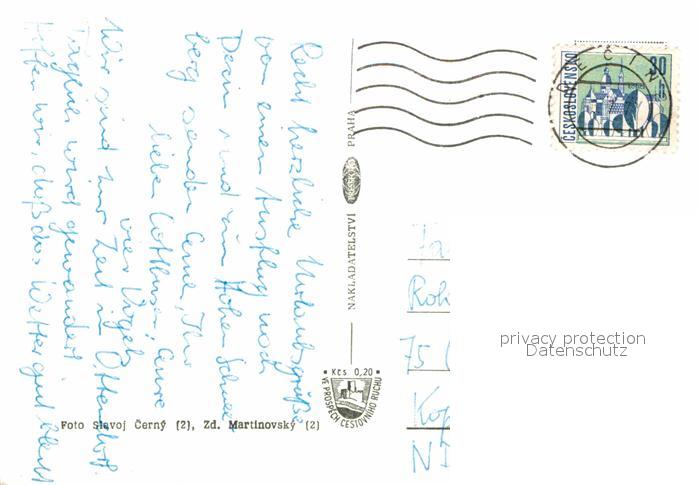 Recht herzliche Urlaubsgrüße
von einem Ausflug nach
Decin und zum Hohen Schnee-
berg senden Eure, Ihr
lieben Cottbuser, Eure
vier Vogels
Wir sind zur Zeit in Ottendorf.
Täglich wird gewandert
Hoffen wir, daß das Wetter gut bleibt
Foto Slavoj Černý (2), Zd. Martinovský (2)
NAKLADATELSTVÍ
PRAHA
• Kčs 0,20 •
VE PROSPĚCH CESTOVNÍHO RUCHU
ČESKOSLOVENSKO
30
h
DĚČÍN
Roh
75
privacy protection
Datenschutz